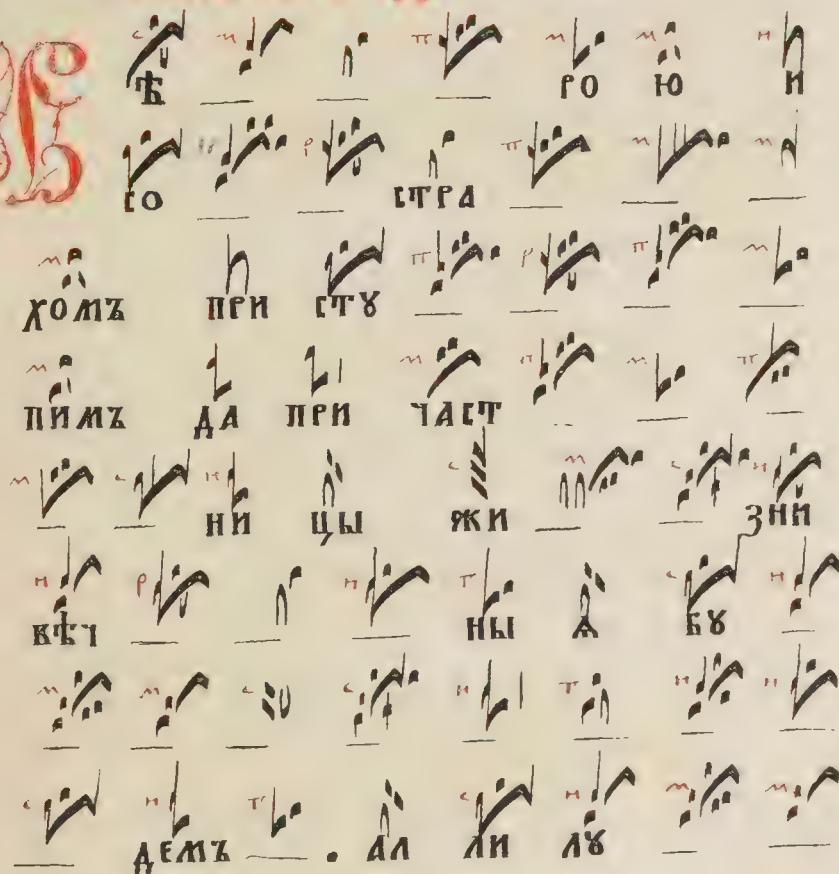 В Ѣ РО Ю И
СО СТРА
ХОМЪ ПРИ СТꙊ
ПИМЪ ДА ПРИ ЧАСТ
НИ ЦЫ ЖИ ЗНИ
ВѢЧ НЫ Ѧ БꙊ
ДЕМЪ . АЛ ЛИ ЛꙊ